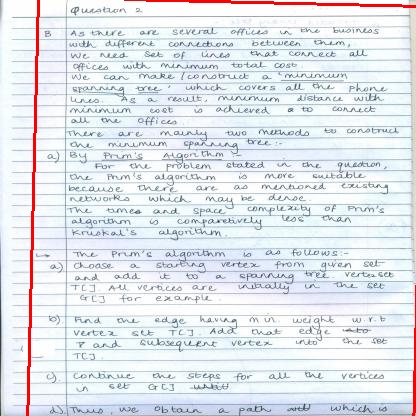 Question 2
B As there are several offices in the business
with different connections between them,
we need set of lines that connect all
offices with minimum total cost.
We can make / construct a 'minimum
spanning tree' which covers all the phone
lines. As a result, minimum distance with
minimum cost is achieved to connect
all the offices.
There are mainly two methods to construct
the minimum spanning tree :-
a) By Prim's Algorithm -
For the problem stated in the question,
the Prim's algorithm is more suitable
because there are as mentioned existing
networks which may be dense.
The times and space complexity of Prim's
algorithm is comparetively less than
Kruskal's algorithm.
→ The Prim's algorithm is as follows:-
a) Choose a starting vertex from given set
and add it to a spanning tree vertex set
T[]. All vertices are initially in the set
G[] for example.
b) Find the edge having min. weight w.r.t
vertex set T[]. Add that edge
and subsequent vertex into the set
T[].
c). Continue the steps for all the vertices
in set G[]
d). Thus, we obtain a path which is